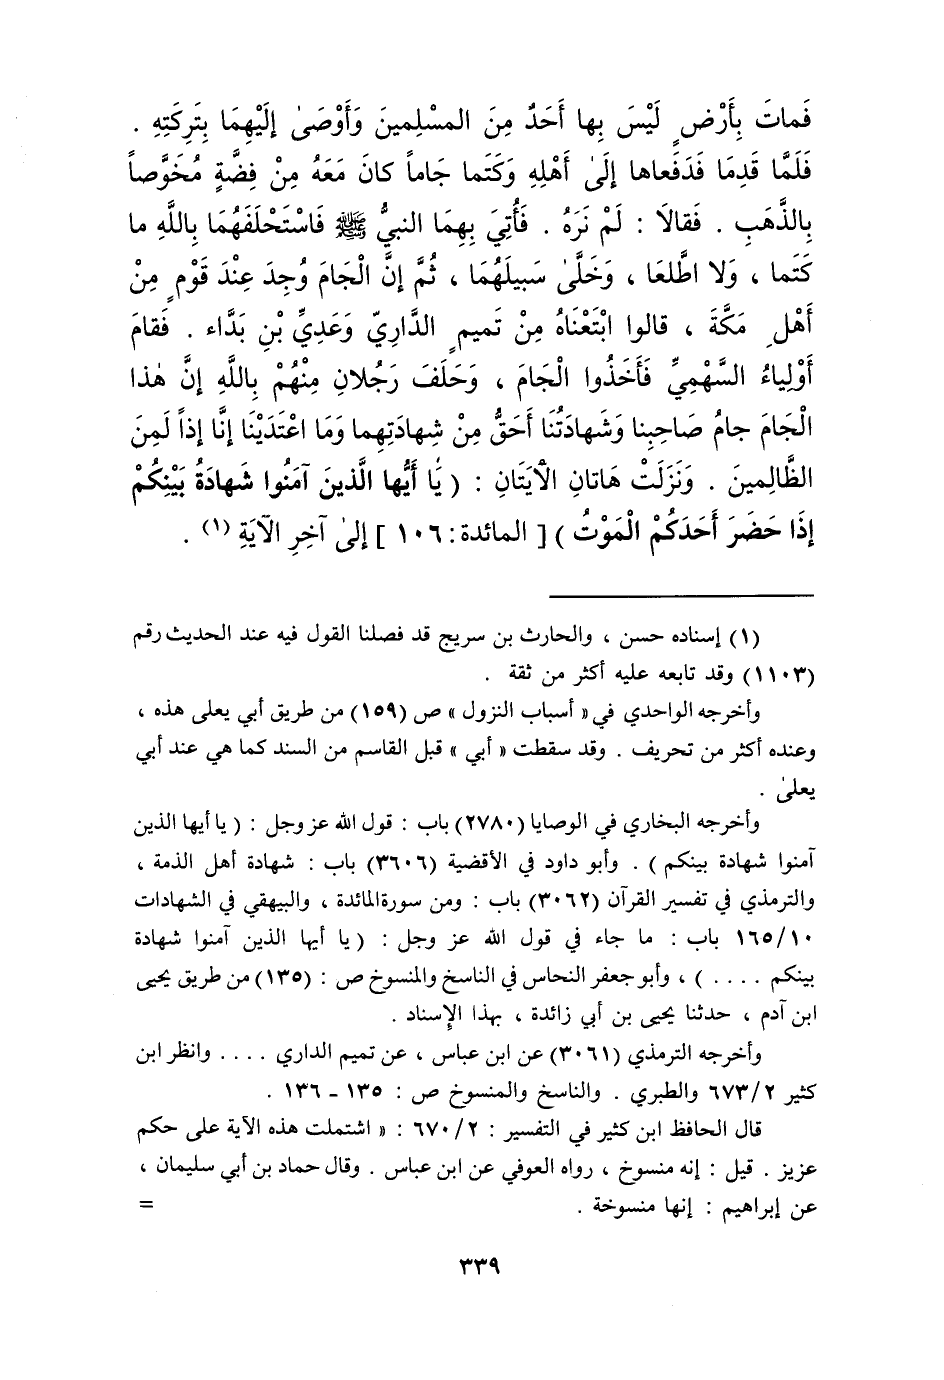 فَماتَ بِأَرْضٍ لَيْسَ بِها أَحَدٌ مِنَ المسْلِمينَ وَأَوْصَىٰ إِلَيْهِمَا بِتَرِكَتِهِ .
فَلَمَّا قَدِمَا فَدَفَعاها إِلَىٰ أَهْلِهِ وَكَتَما جَاماً كانَ مَعَهُ مِنْ فِضَّةٍ مُخَوَّصاً
بِالذَّهَبِ . فَقالَا : لَمْ نَرَهُ . فَأُتِيَ بِهِمَا النبيُّ ﷺ فَاسْتَحْلَفَهُمَا بِاللَّهِ ما
كَتَما ، وَلا اطَّلعَا ، وَخَلَّىٰ سَبيلَهُمَا ، ثُمَّ إنَّ الْجَامَ وُجِدَ عِنْدَ قَوْمٍ مِنْ
أَهْلِ مَكَّةَ ، قالوا ابْتَعْنَاهُ مِنْ تَميمٍ الدَّاريّ وَعَدِيِّ بْنِ بَدَّاء . فَقامَ
أَوْلِياءُ السَّهْمِيِّ فَأَخَذُوا الْجَامَ ، وَحَلَفَ رَجُلانِ مِنْهُمْ بِاللَّهِ إنَّ هٰذا
الْجَامَ جامُ صَاحِبِنا وَشَهادَتُنَا أَحَقُّ مِنْ شِهادَتِهِما وَمَا اعْتَدَيْنَا إنَّا إذاً لَمِنَ
الظَّالِمينَ . وَنَزَلَتْ هَاتانِ الآيَتَانِ : ( يَا أَيُّها الَّذينَ آمَنُوا شَهادَةُ بَيْنِكُمْ
إذَا حَضَرَ أَحَدَكُمْ الْمَوْتُ ) [ المائدة : ١٠٦ ] إلىٰ آخِرِ الآيَةِ (١) .
(١) إسناده حسن ، والحارث بن سريج قد فصلنا القول فيه عند الحديث رقم
(١١٠٣) وقد تابعه عليه أكثر من ثقة .
وأخرجه الواحدي في « أسباب النزول » ص (١٥٩) من طريق أبي يعلى هذه ،
وعنده أكثر من تحريف . وقد سقطت « أبي » قبل القاسم من السند كما هي عند أبي
يعلىٰ .
وأخرجه البخاري في الوصايا (٢٧٨٠) باب : قول الله عز وجل : ( يا أيها الذين
آمنوا شهادة بينكم ) . وأبو داود في الأقضية (٣٦٠٦) باب : شهادة أهل الذمة ،
والترمذي في تفسير القرآن (٣٠٦٢) باب : ومن سورة المائدة ، والبيهقي في الشهادات
١٦٥/١٠ باب : ما جاء في قول الله عز وجل : ( يا أيها الذين آمنوا شهادة
بينكم . . . . ) ، وأبو جعفر النحاس في الناسخ والمنسوخ ص : (١٣٥) من طريق يحيى
ابن آدم ، حدثنا يحيى بن أبي زائدة ، بهذا الإسناد .
وأخرجه الترمذي (٣٠٦١) عن ابن عباس ، عن تميم الداري . . . . وانظر ابن
كثير ٦٧٣/٢ والطبري . والناسخ والمنسوخ ص : ١٣٥ - ١٣٦ .
قال الحافظ ابن كثير في التفسير : ٦٧٠/٢ : « اشتملت هذه الآية على حكم
عزيز . قيل : إنه منسوخ ، رواه العوفي عن ابن عباس . وقال حماد بن أبي سليمان ،
عن إبراهيم : إنها منسوخة . =
٣٣٩